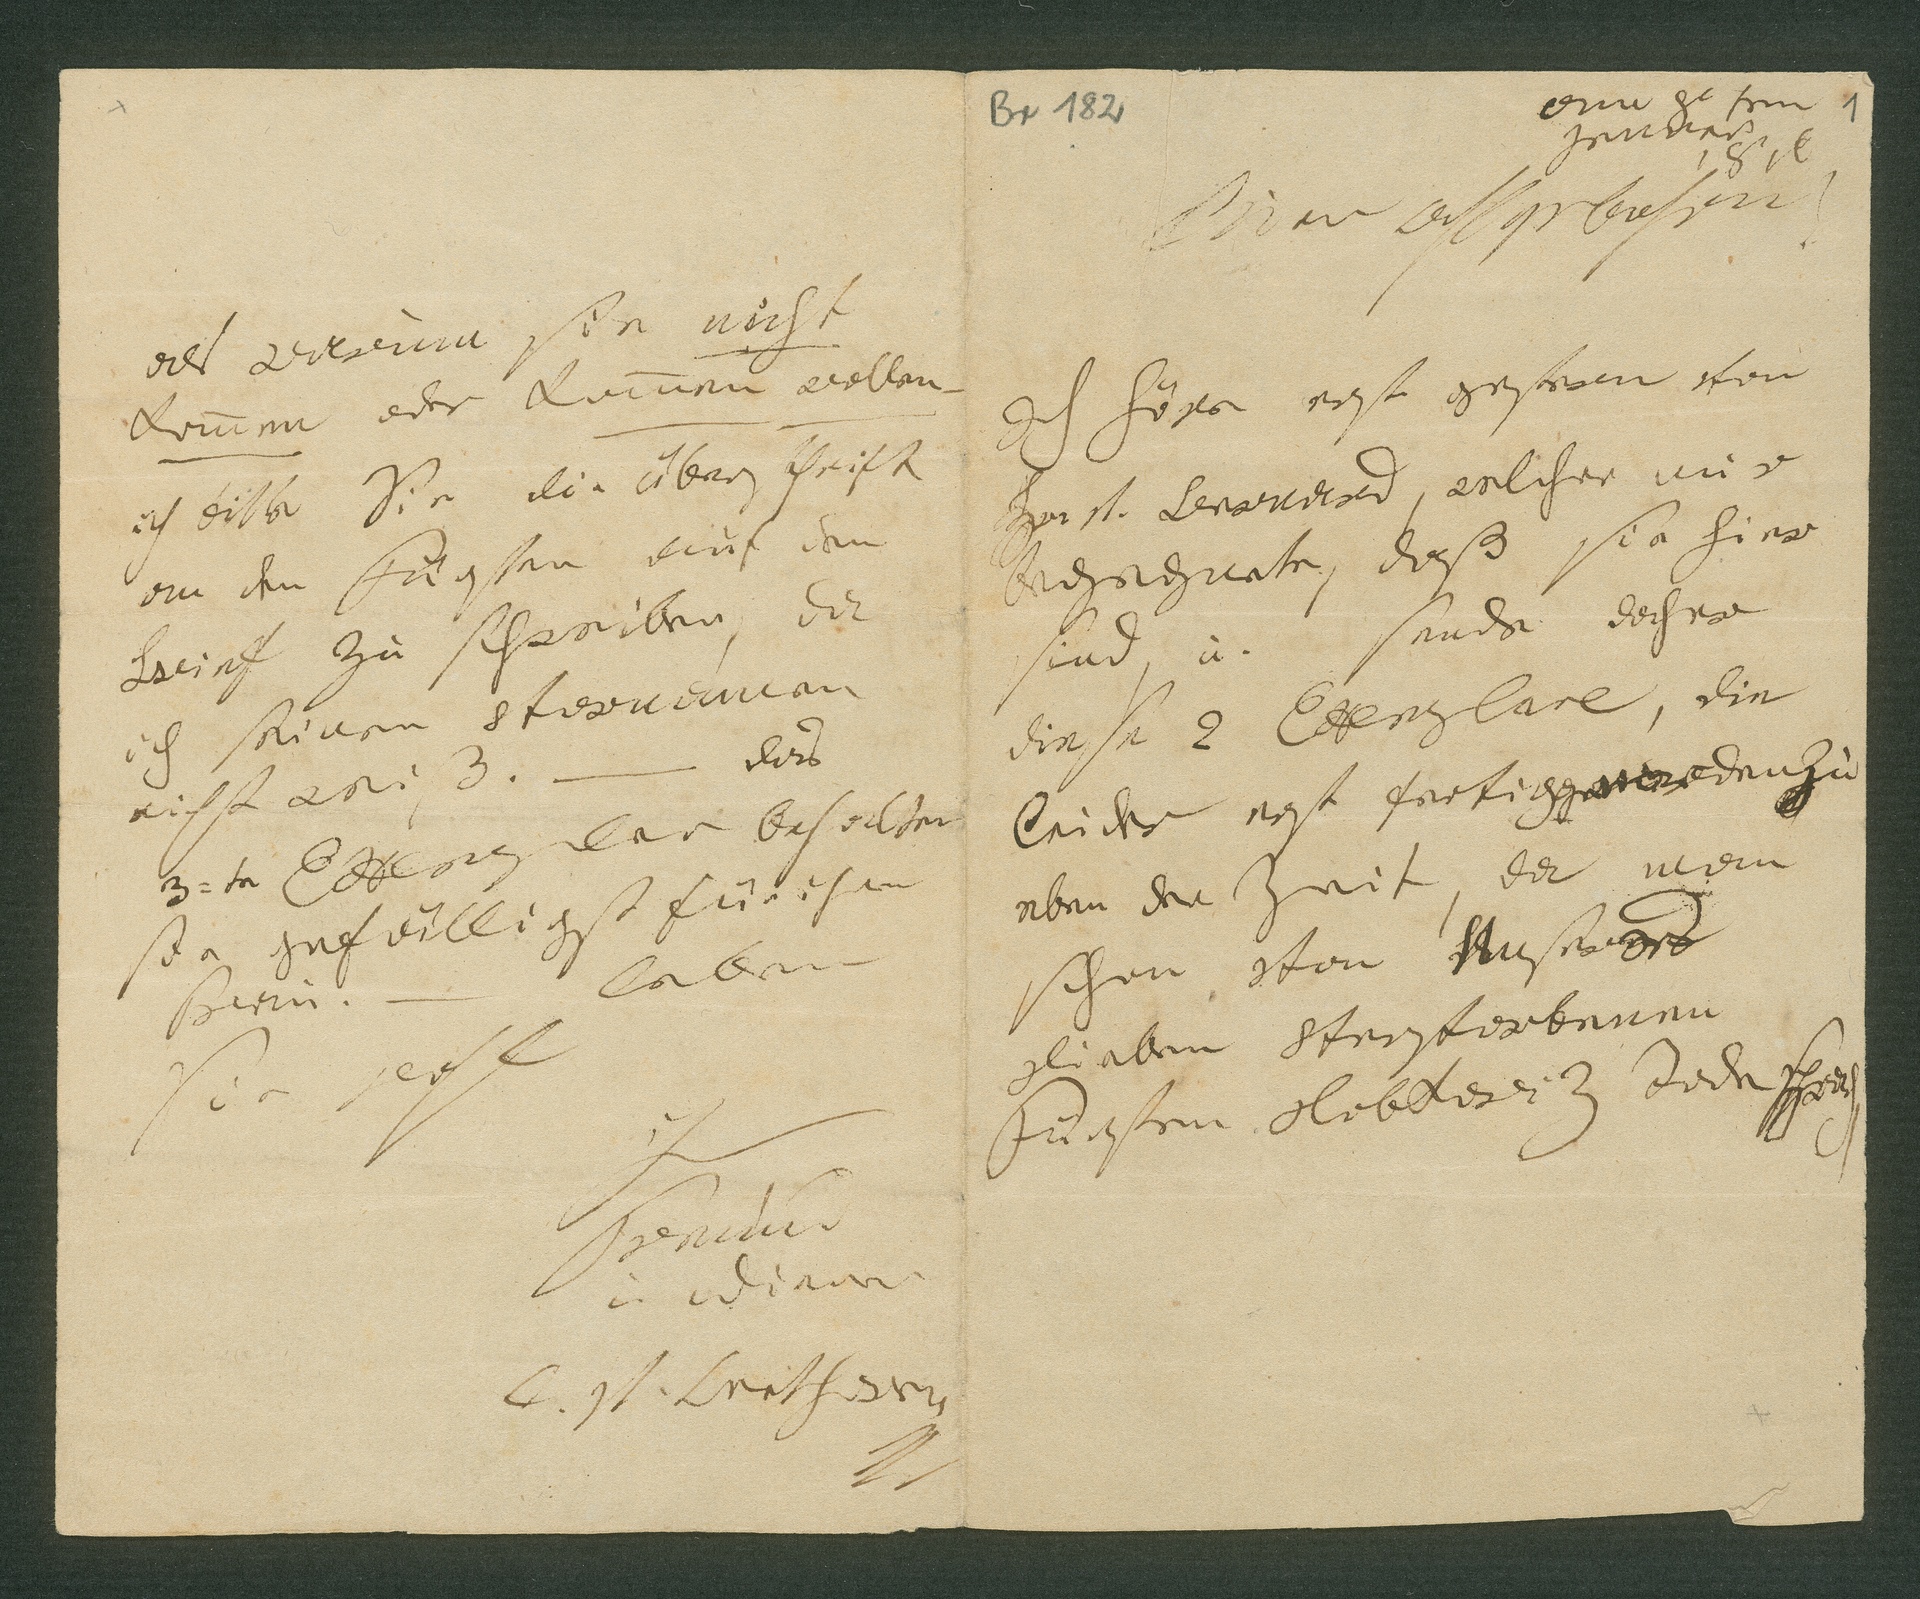 Br 182
1
am 8ten
jenner
1817
Euer wohlgebohrn!
Ich höre erst gestern von
Hr. v. Bernard, welcher mir
begegnete, daß sie hier
sind, u. sende daher
diese 2 Exemplare, die
leider erst fertig geworden zu
eben der Zeit, da man
schon von Unsers
lieben verstorbenen
Fürsten Lobkowiz Tode sprach
als warum sie nicht
kommen oder kommen wollen –
ich bitte Sie die überschrift
an den Fürsten auf dem
Brief zu schreiben, da
ich seinen vornamen
nicht weiß. — das
3=te Exemplar behalten
sie gefälligst für ihre
Frau. — leben
sie wohl
ihr
Freund
u. diener
L. v. Beethoven